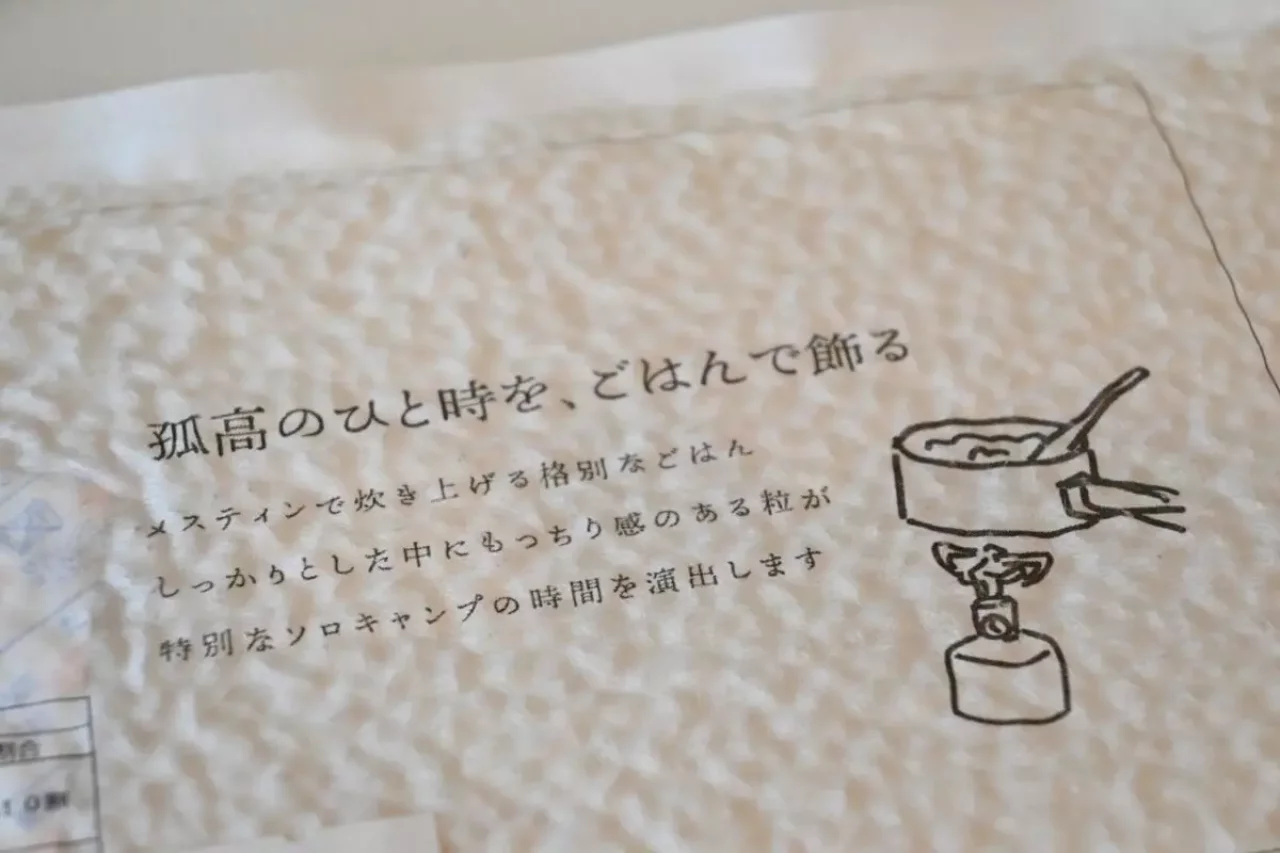 孤高のひと時を、ごはんで飾る
メスティンで炊き上げる格別なごはん
しっかりとした中にもっちり感のある粒が
特別なソロキャンプの時間を演出します
割合
10割